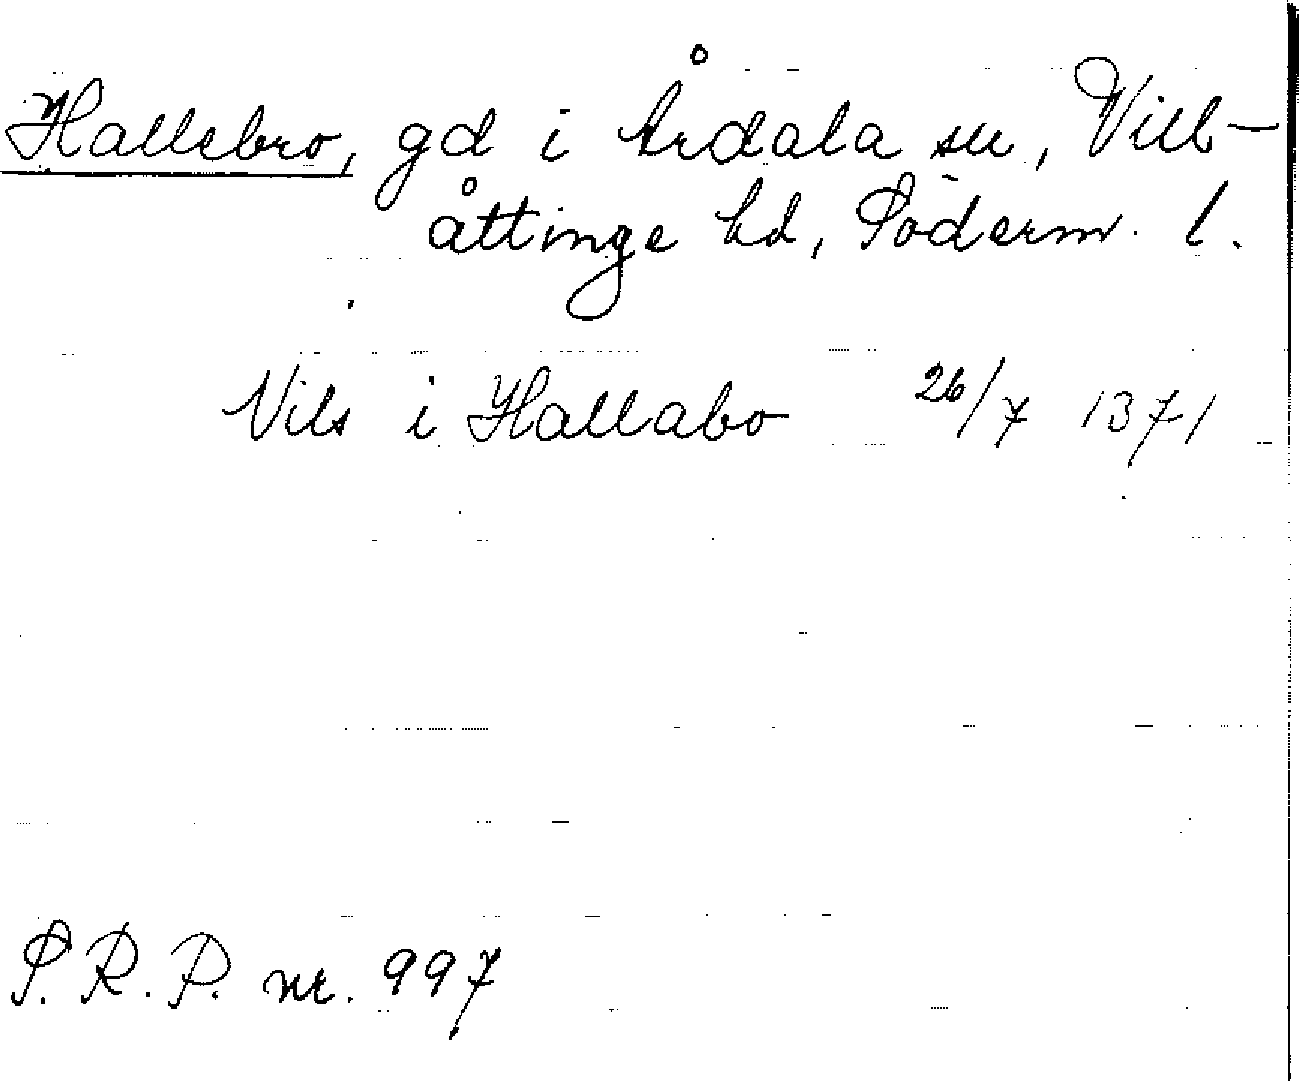 Hallebro, gd i Årdala sn, Vill-
åttinge hd, Söderm. l.
Nils i Hallabo 26/7 1371
S.R.P. nr. 997